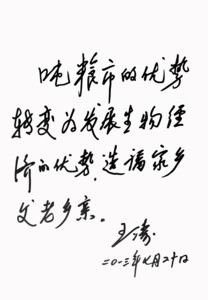 吨粮市的优势
转变为发展生物经
济的优势,造福家乡
父老乡亲。
王涛
二〇一三年七月二十日